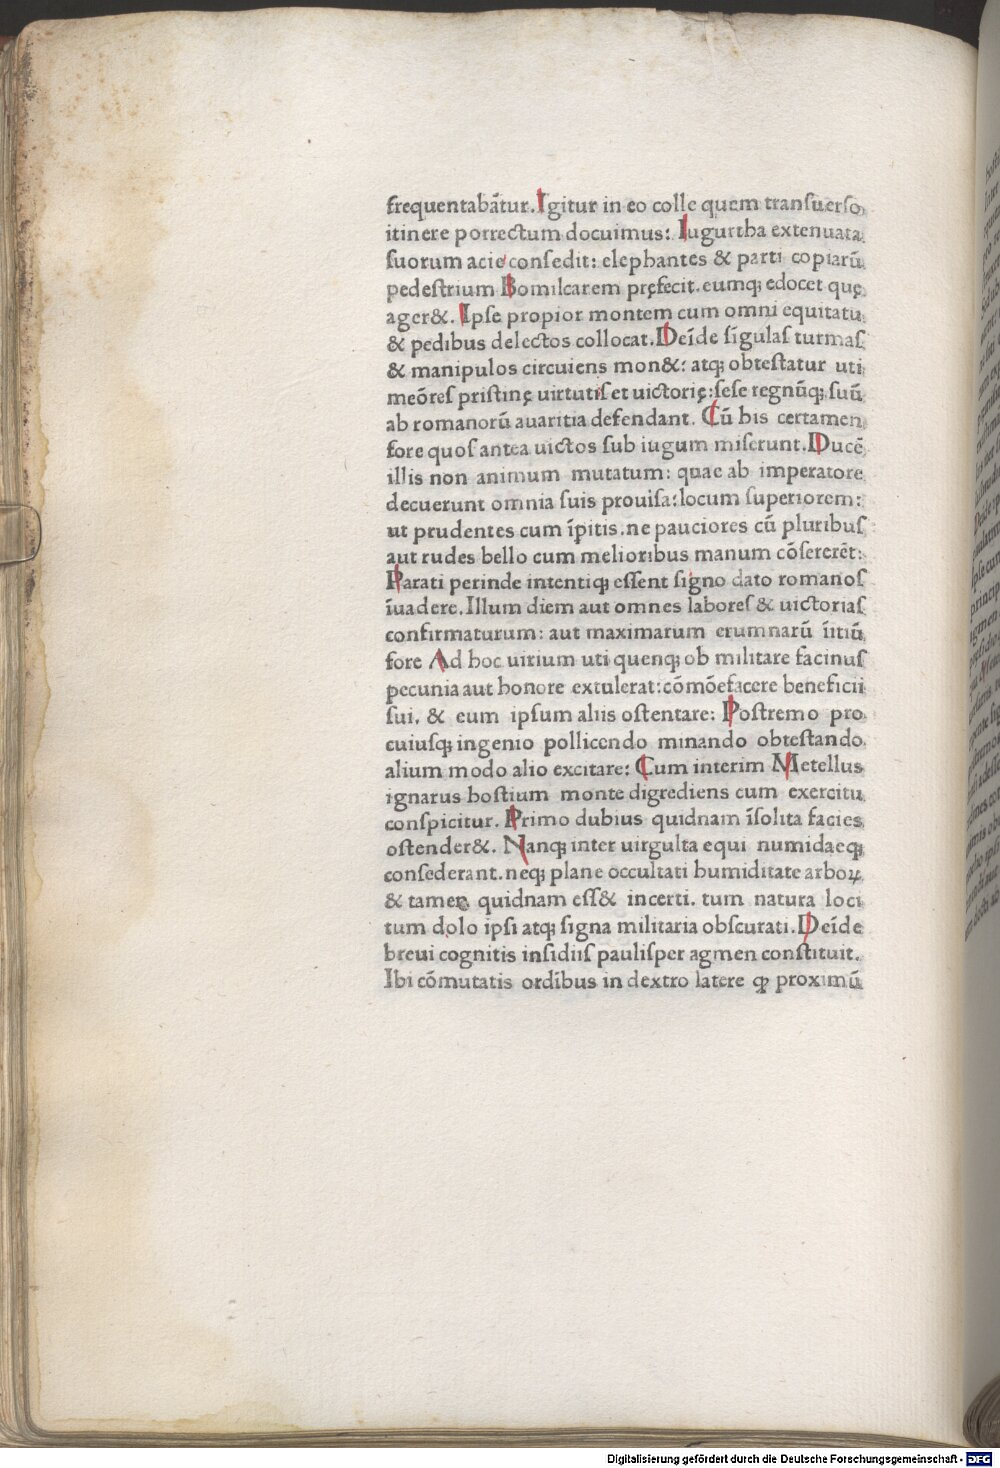 frequentabāтur. Igitur in eo colle quem transuerso
itinere porrectum docuimus: Iugurtha extenuata
ſuorum acie conſedit: elephantes & parti copiarū
pedeſtrium Bomilcarem pręfecit. eumq; edocet quę
ager&. Ipſe propior montem cum omni equitatu
& pedibus delectos collocat. Deīde ſīgulaſ turmaſ
& manipulos circuiens mon&: atq; obteſtatur uti
meōreſ priſtinę uirtutiſ et uictorię: ſeſe regnūq; ſuū
ab romanorū auaritia defendant. Cū his certamen
fore quoſ antea uictos ſub iugum miſerunt. Ducē
illis non animum mutatum: quae ab imperatore
decuerunt omnia ſuis prouiſa: locum ſuperiorem:
ut prudentes cum īpitis. ne pauciores cū pluribuſ
aut rudes bello cum melioribus manum cōſererēt:
Parati perinde intentiq; eſſent ſigno dato romanoſ
īuadere. Illum diem aut omnes laboreſ & uictoriaſ
confirmaturum: aut maximarum erumnarū īitiū
fore Ad hoc uirium uti quenq; ob militare facinuſ
pecunia aut honore extulerat: cōmōefacere beneficii
ſui. & eum ipſum aliis oſtentare: Poſtremo pro
cuiuſq; ingenio pollicendo minando obteſtando
alium modo alio excitare: Cum interim Metellus
ignarus hoſtium monte digrediens cum exercitu
conſpicitur. Primo dubius quidnam īſolita facies
oſtender&. Nanq; inter uirgulta equi numidaeq;
conſederant. neq; plane occultati humiditate arboꝝ
& tamen quidnam eſſ& incerti. tum natura loci
tum dolo ipſi atq; ſigna militaria obſcurati. Deīde
breui cognitis inſidiiſ pauliſper agmen conſtituit.
Ibi cōmutatis ordībus in dextro latere ꝙ proximū
Digitalisierung gefördert durch die Deutsche Forschungsgemeinschaft - DFG